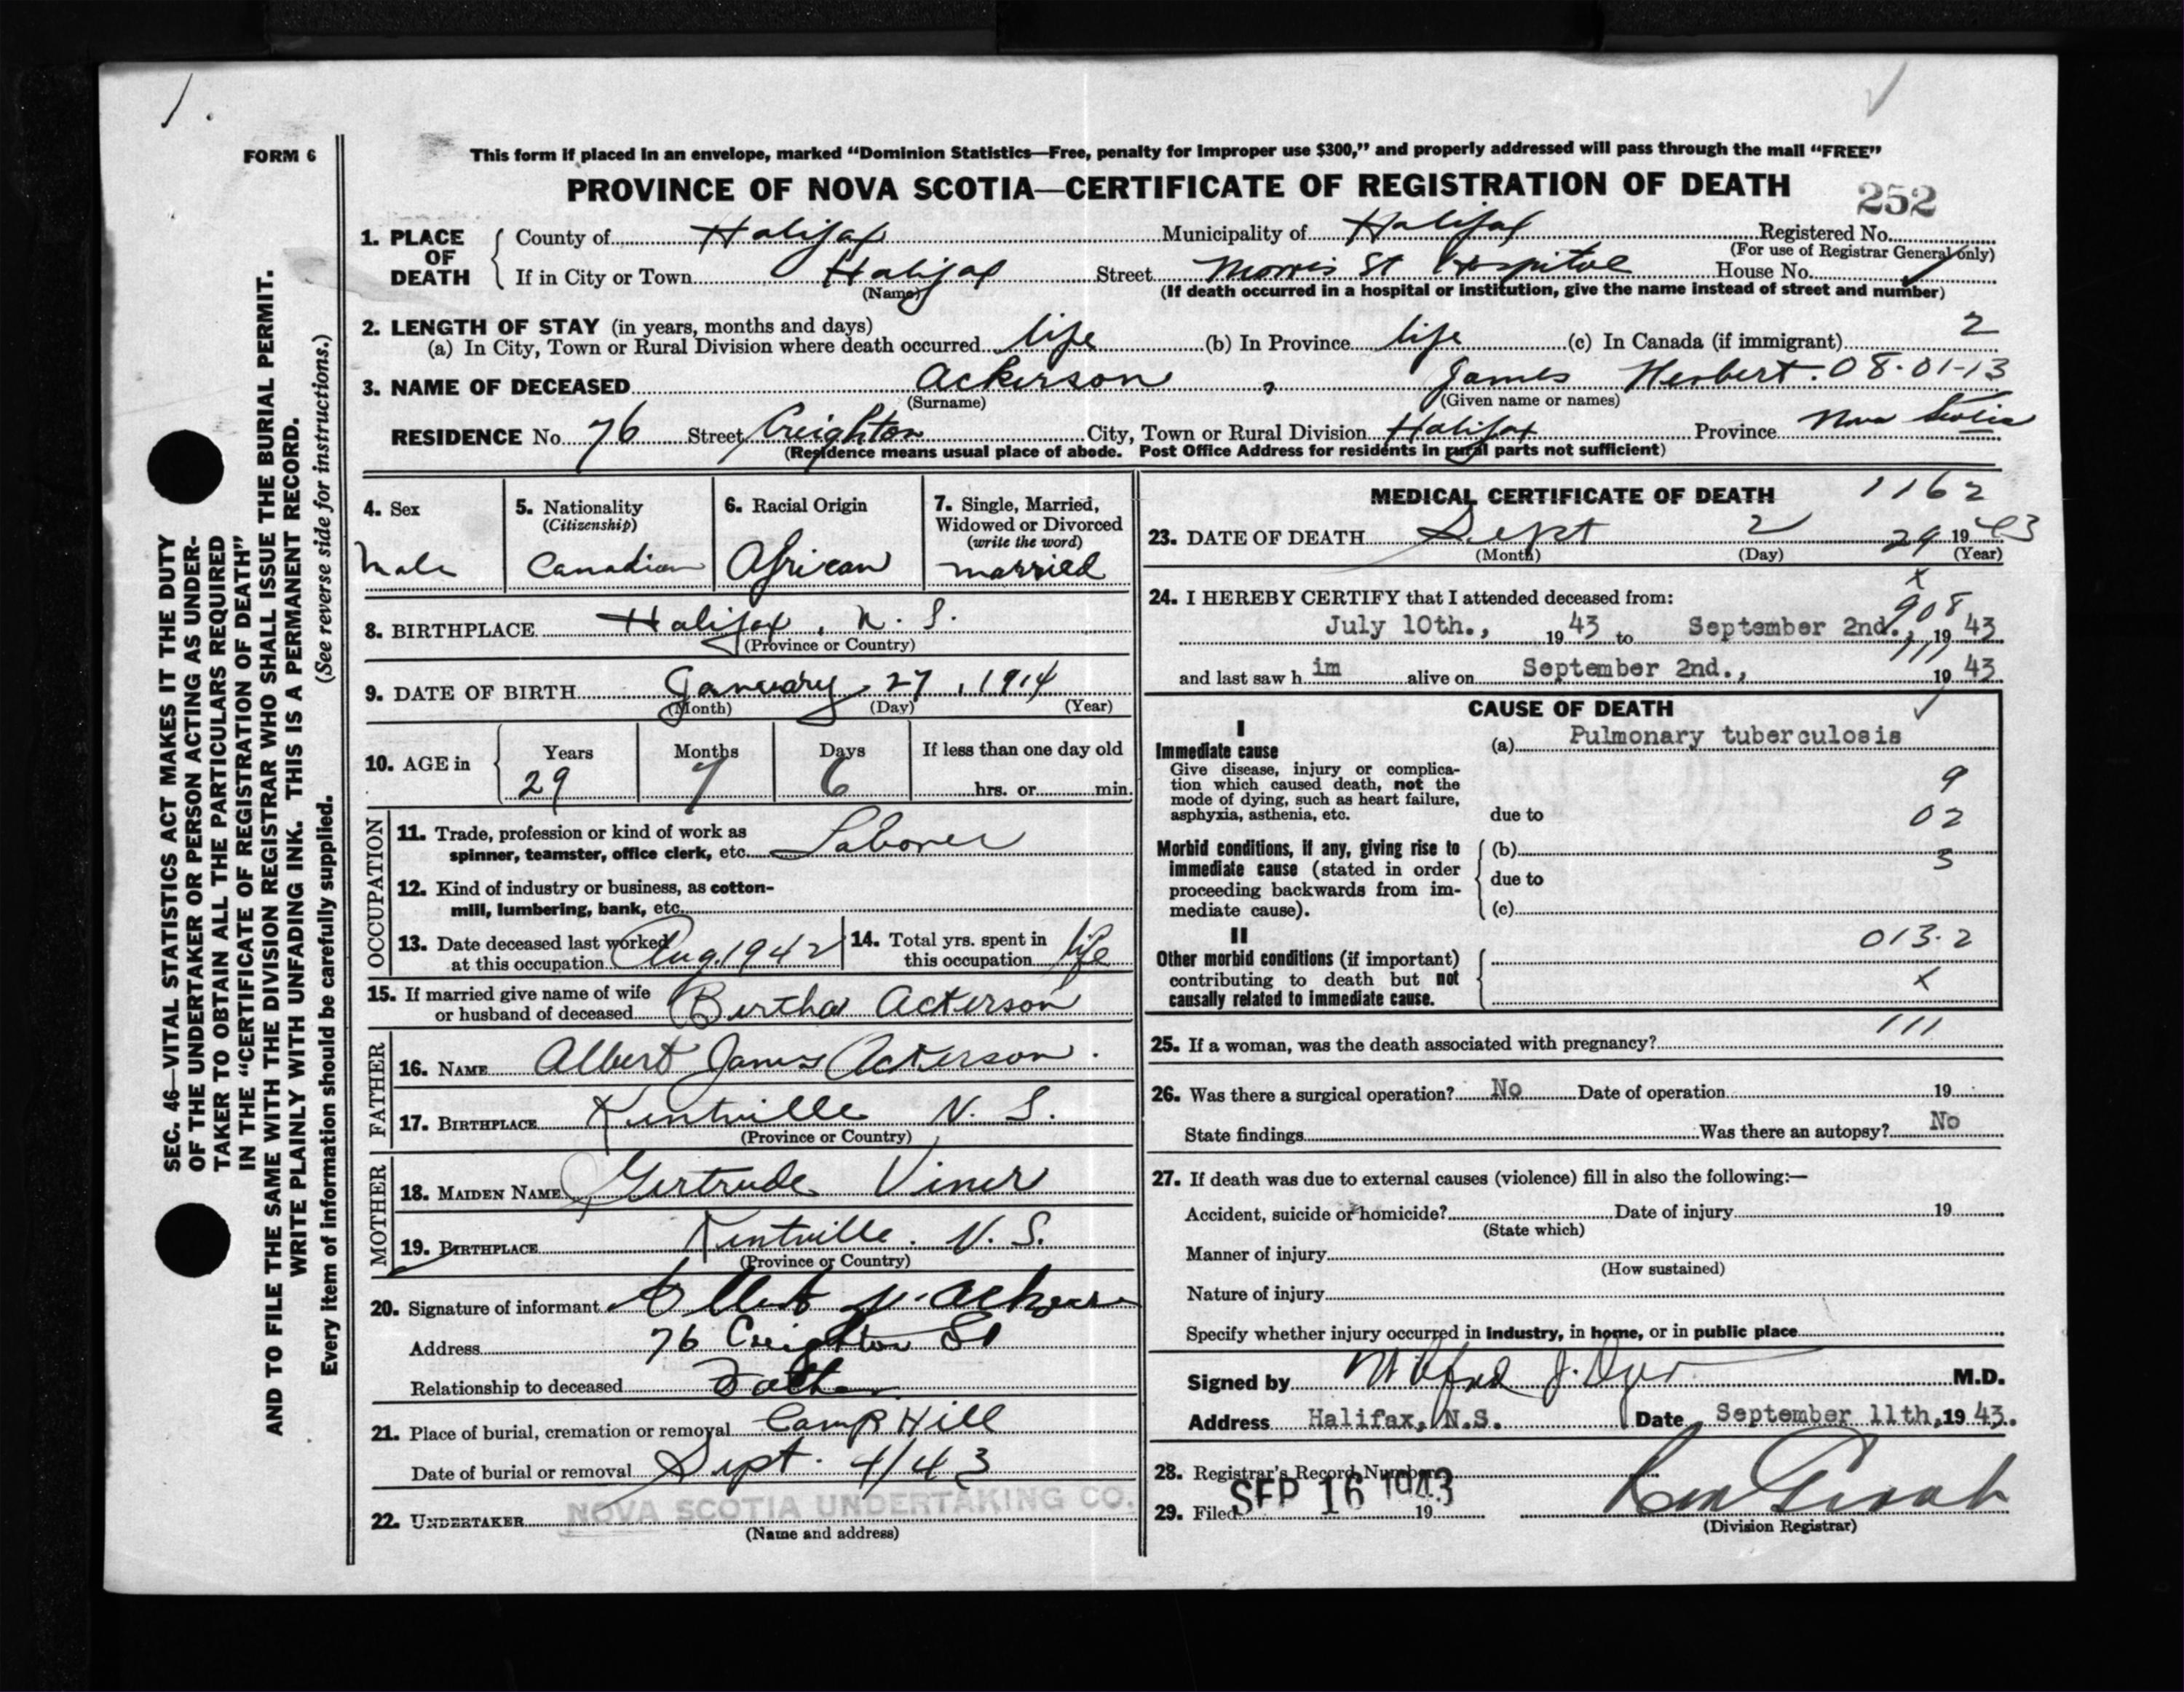 1.
FORM 6
This form if placed in an envelope, marked “Dominion Statistics—Free, penalty for improper use $300,” and properly addressed will pass through the mail “FREE”
PROVINCE OF NOVA SCOTIA—CERTIFICATE OF REGISTRATION OF DEATH
252
1. PLACE OF DEATH
County of Halifax Municipality of Halifax Registered No.
(For use of Registrar General only)
If in City or Town Halifax Street Morris St Hospital House No.
(Name) (If death occurred in a hospital or institution, give the name instead of street and number)
2. LENGTH OF STAY (in years, months and days)
(a) In City, Town or Rural Division where death occurred life (b) In Province life (c) In Canada (if immigrant) 2
3. NAME OF DECEASED Ackerson, James Herbert. 08-01-13
(Surname) (Given name or names)
RESIDENCE No. 76 Street Creighton City, Town or Rural Division Halifax Province Nova Scotia
(Residence means usual place of abode. Post Office Address for residents in rural parts not sufficient)
4. Sex
Male
5. Nationality
(Citizenship)
Canadian
6. Racial Origin
African
7. Single, Married,
Widowed or Divorced
(write the word)
married
8. BIRTHPLACE Halifax, N. S.
(Province or Country)
9. DATE OF BIRTH January 27, 1914
(Month) (Day) (Year)
10. AGE in
Years Months Days If less than one day old
29 7 6 hrs. or min.
OCCUPATION
11. Trade, profession or kind of work as
spinner, teamster, office clerk, etc. Laborer
12. Kind of industry or business, as cotton-
mill, lumbering, bank, etc.
13. Date deceased last worked
at this occupation Aug. 1942
14. Total yrs. spent in
this occupation life
15. If married give name of wife
or husband of deceased Bertha Ackerson
FATHER
16. NAME Albert James Ackerson.
17. BIRTHPLACE Kentville N. S.
(Province or Country)
MOTHER
18. MAIDEN NAME Gertrude Viner
19. BIRTHPLACE Kentville. N. S.
(Province or Country)
20. Signature of informant Albert
Address 76 Creighton St
Relationship to deceased Father
21. Place of burial, cremation or removal Camp Hill
Date of burial or removal Sept. 4/43
22. UNDERTAKER NOVA SCOTIA UNDERTAKING CO.
(Name and address)
MEDICAL CERTIFICATE OF DEATH 1162
23. DATE OF DEATH Sept 2 29 1943
(Month) (Day) (Year)
x
24. I HEREBY CERTIFY that I attended deceased from:
908
July 10th., 1943 to September 2nd., 19 43
111
and last saw him alive on September 2nd., 19 43
CAUSE OF DEATH
I
Immediate cause
Give disease, injury or complica-
tion which caused death, not the
mode of dying, such as heart failure,
asphyxia, asthenia, etc.
(a) Pulmonary tuberculosis
9
due to 02
Morbid conditions, if any, giving rise to
immediate cause (stated in order
proceeding backwards from im-
mediate cause).
(b)
3
due to
(c)
II
Other morbid conditions (if important)
contributing to death but not
causally related to immediate cause.
013.2
x
111
25. If a woman, was the death associated with pregnancy?
26. Was there a surgical operation? No Date of operation 19
State findings Was there an autopsy? No
27. If death was due to external causes (violence) fill in also the following:—
Accident, suicide or homicide? Date of injury 19
(State which)
Manner of injury
(How sustained)
Nature of injury
Specify whether injury occurred in industry, in home, or in public place
Signed by J. M.D.
Address Halifax, N.S. Date September 11th, 1943.
28. Registrar's Record Number
29. Filed SEP 16 1943 19
(Division Registrar)
SEC. 46—VITAL STATISTICS ACT MAKES IT THE DUTY
OF THE UNDERTAKER OR PERSON ACTING AS UNDER-
TAKER TO OBTAIN ALL THE PARTICULARS REQUIRED
IN THE “CERTIFICATE OF REGISTRATION OF DEATH”
AND TO FILE THE SAME WITH THE DIVISION REGISTRAR WHO SHALL ISSUE THE BURIAL PERMIT.
WRITE PLAINLY WITH UNFADING INK. THIS IS A PERMANENT RECORD.
(See reverse side for instructions.)
Every item of information should be carefully supplied.